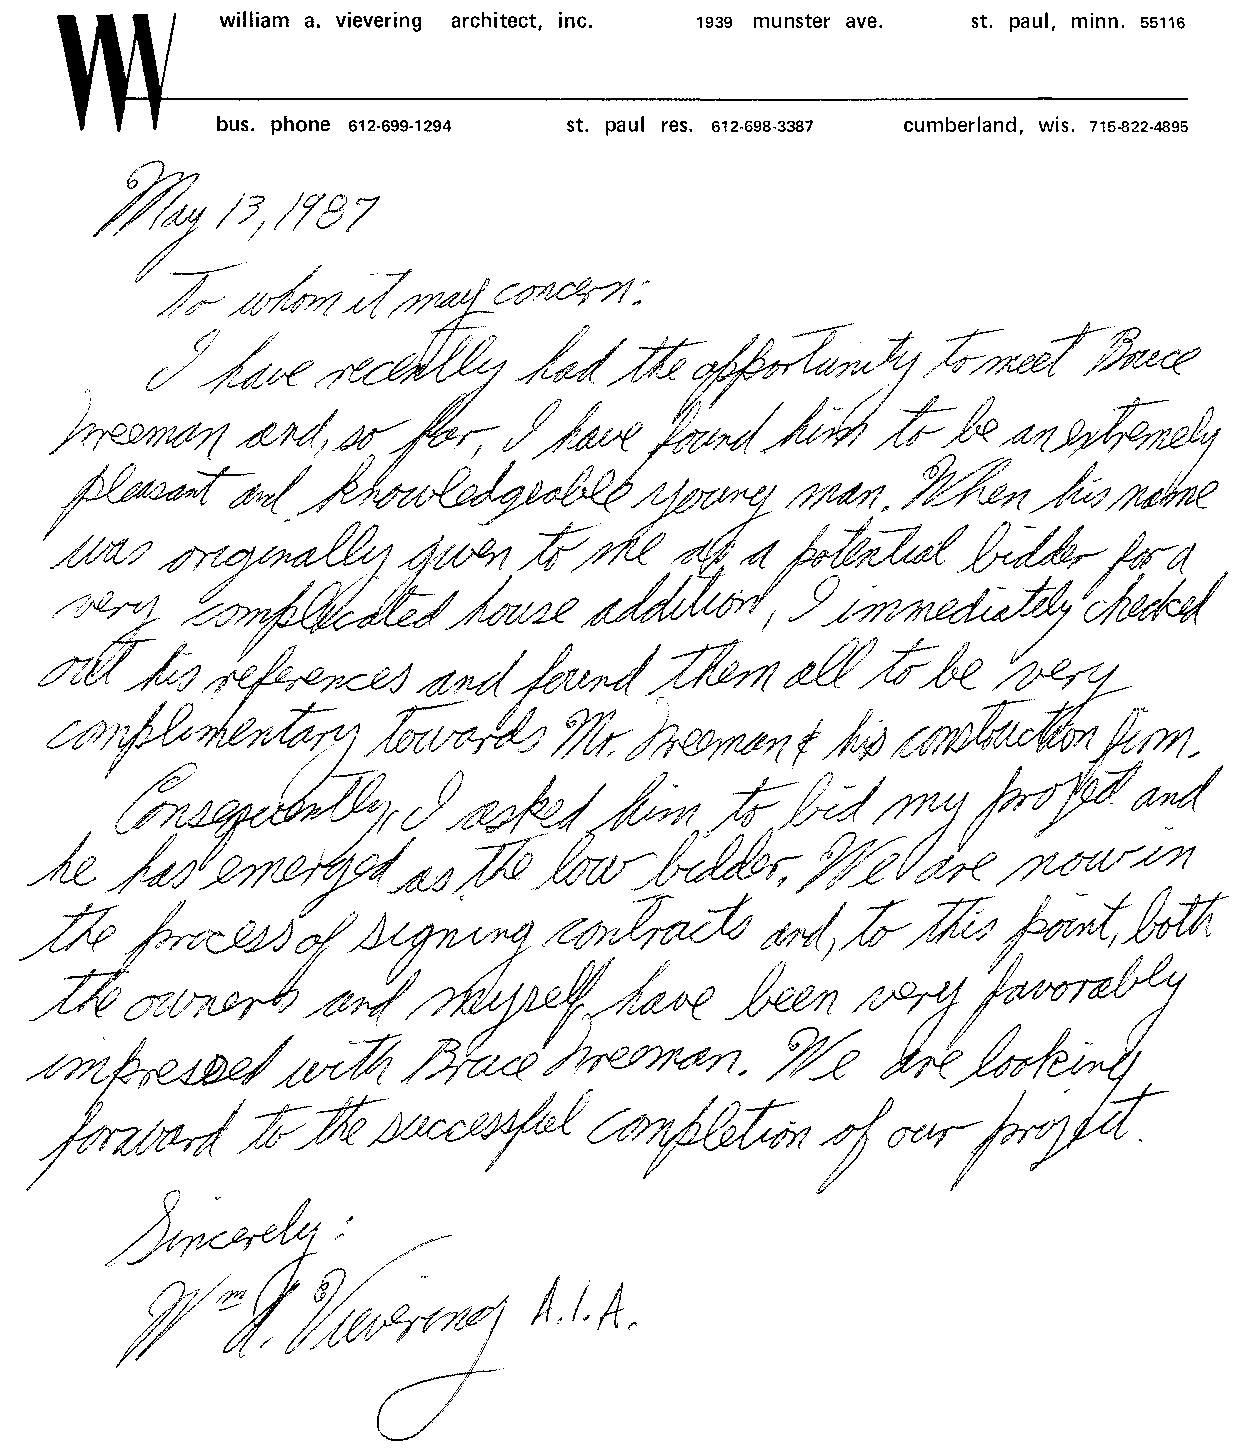 william a. vievering architect, inc. 1939 munster ave. st. paul, minn. 55116
bus. phone 612-699-1294 st. paul res. 612-698-3387 cumberland, wis. 715-822-4895
May 13, 1987
To whom it may concern:
I have recently had the opportunity to meet Bruce
Freeman and, so far, I have found him to be an extremely
pleasant and knowledgeable young man. When his name
was originally given to me as a potential bidder for a
very complicated house addition, I immediately checked
out his references and found them all to be very
complimentary towards Mr. Freeman & his construction firm.
Consequently, I asked him to bid my project and
he has emerged as the low bidder. We are now in
the process of signing contracts and, to this point, both
the owners and myself have been very favorably
impressed with Bruce Freeman. We are looking
forward to the successful completion of our project.
Sincerely:
Wm A. Vievering A.I.A.